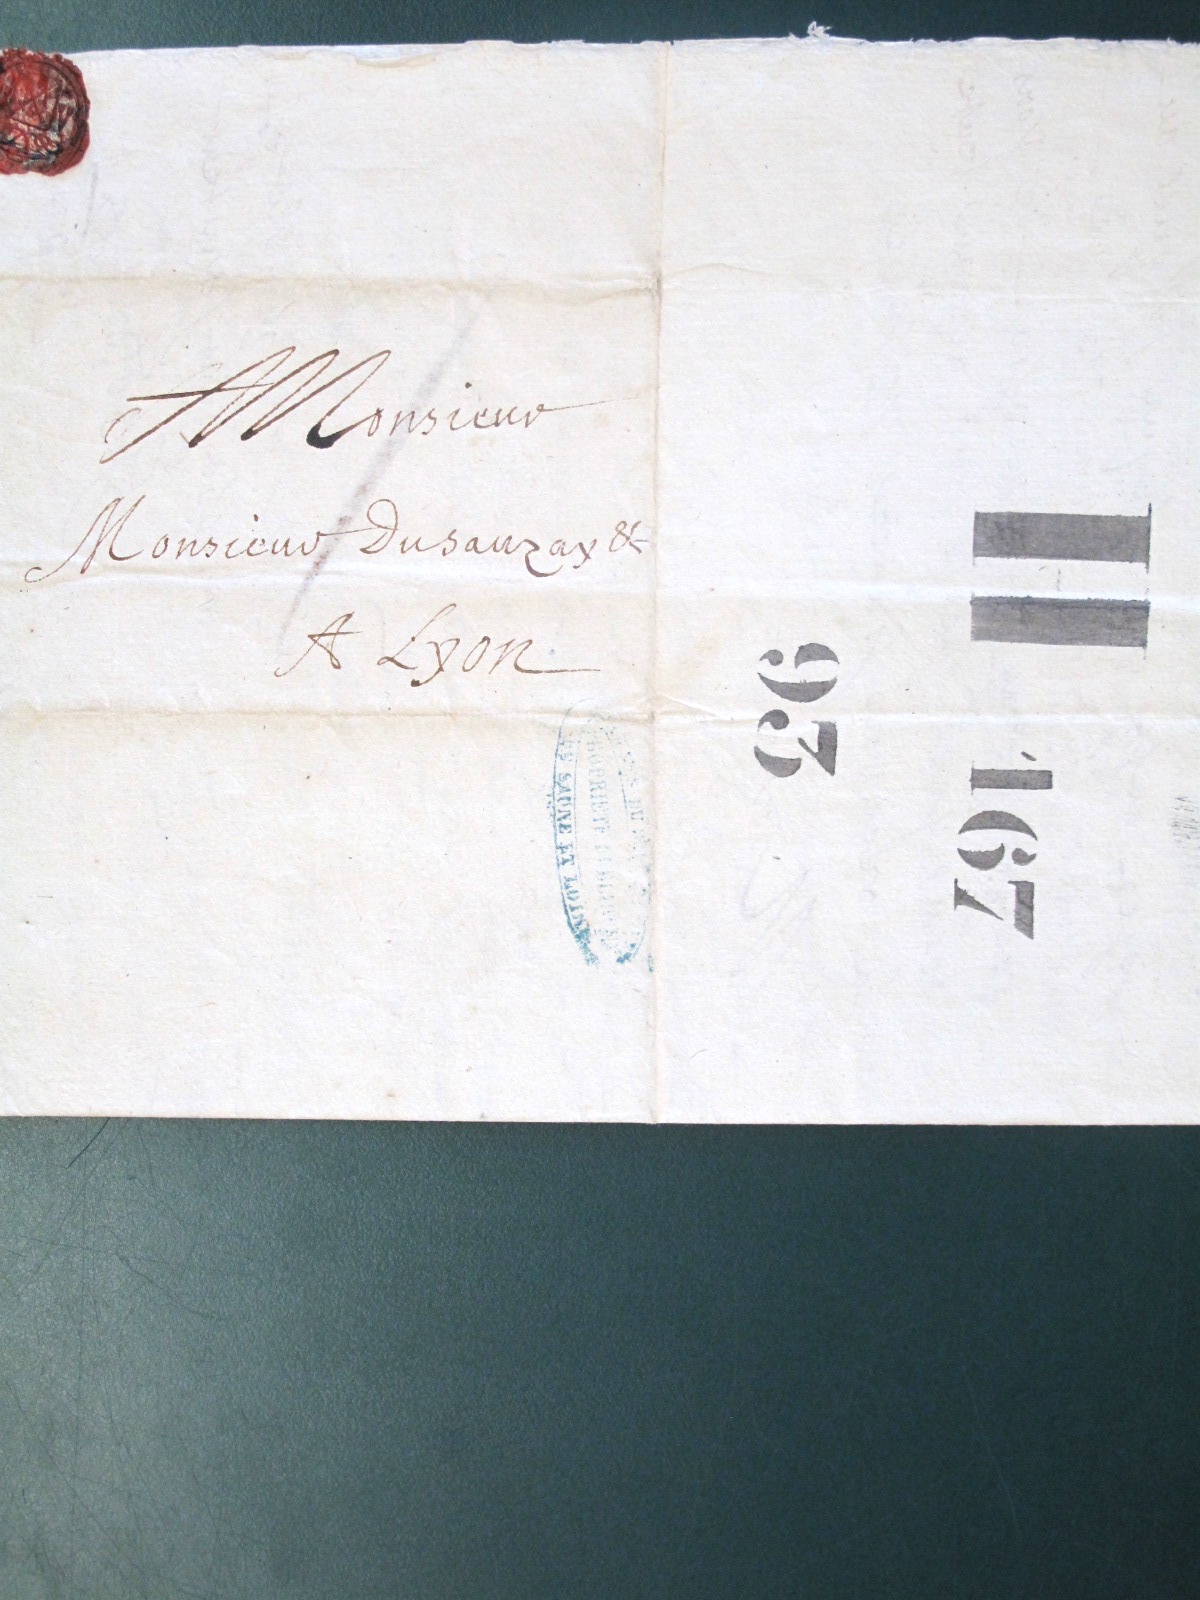 A Monsieur
Monsieur Dusauzay &c
A Lyon
DE SAÔNE ET LOIRE
II
93
167